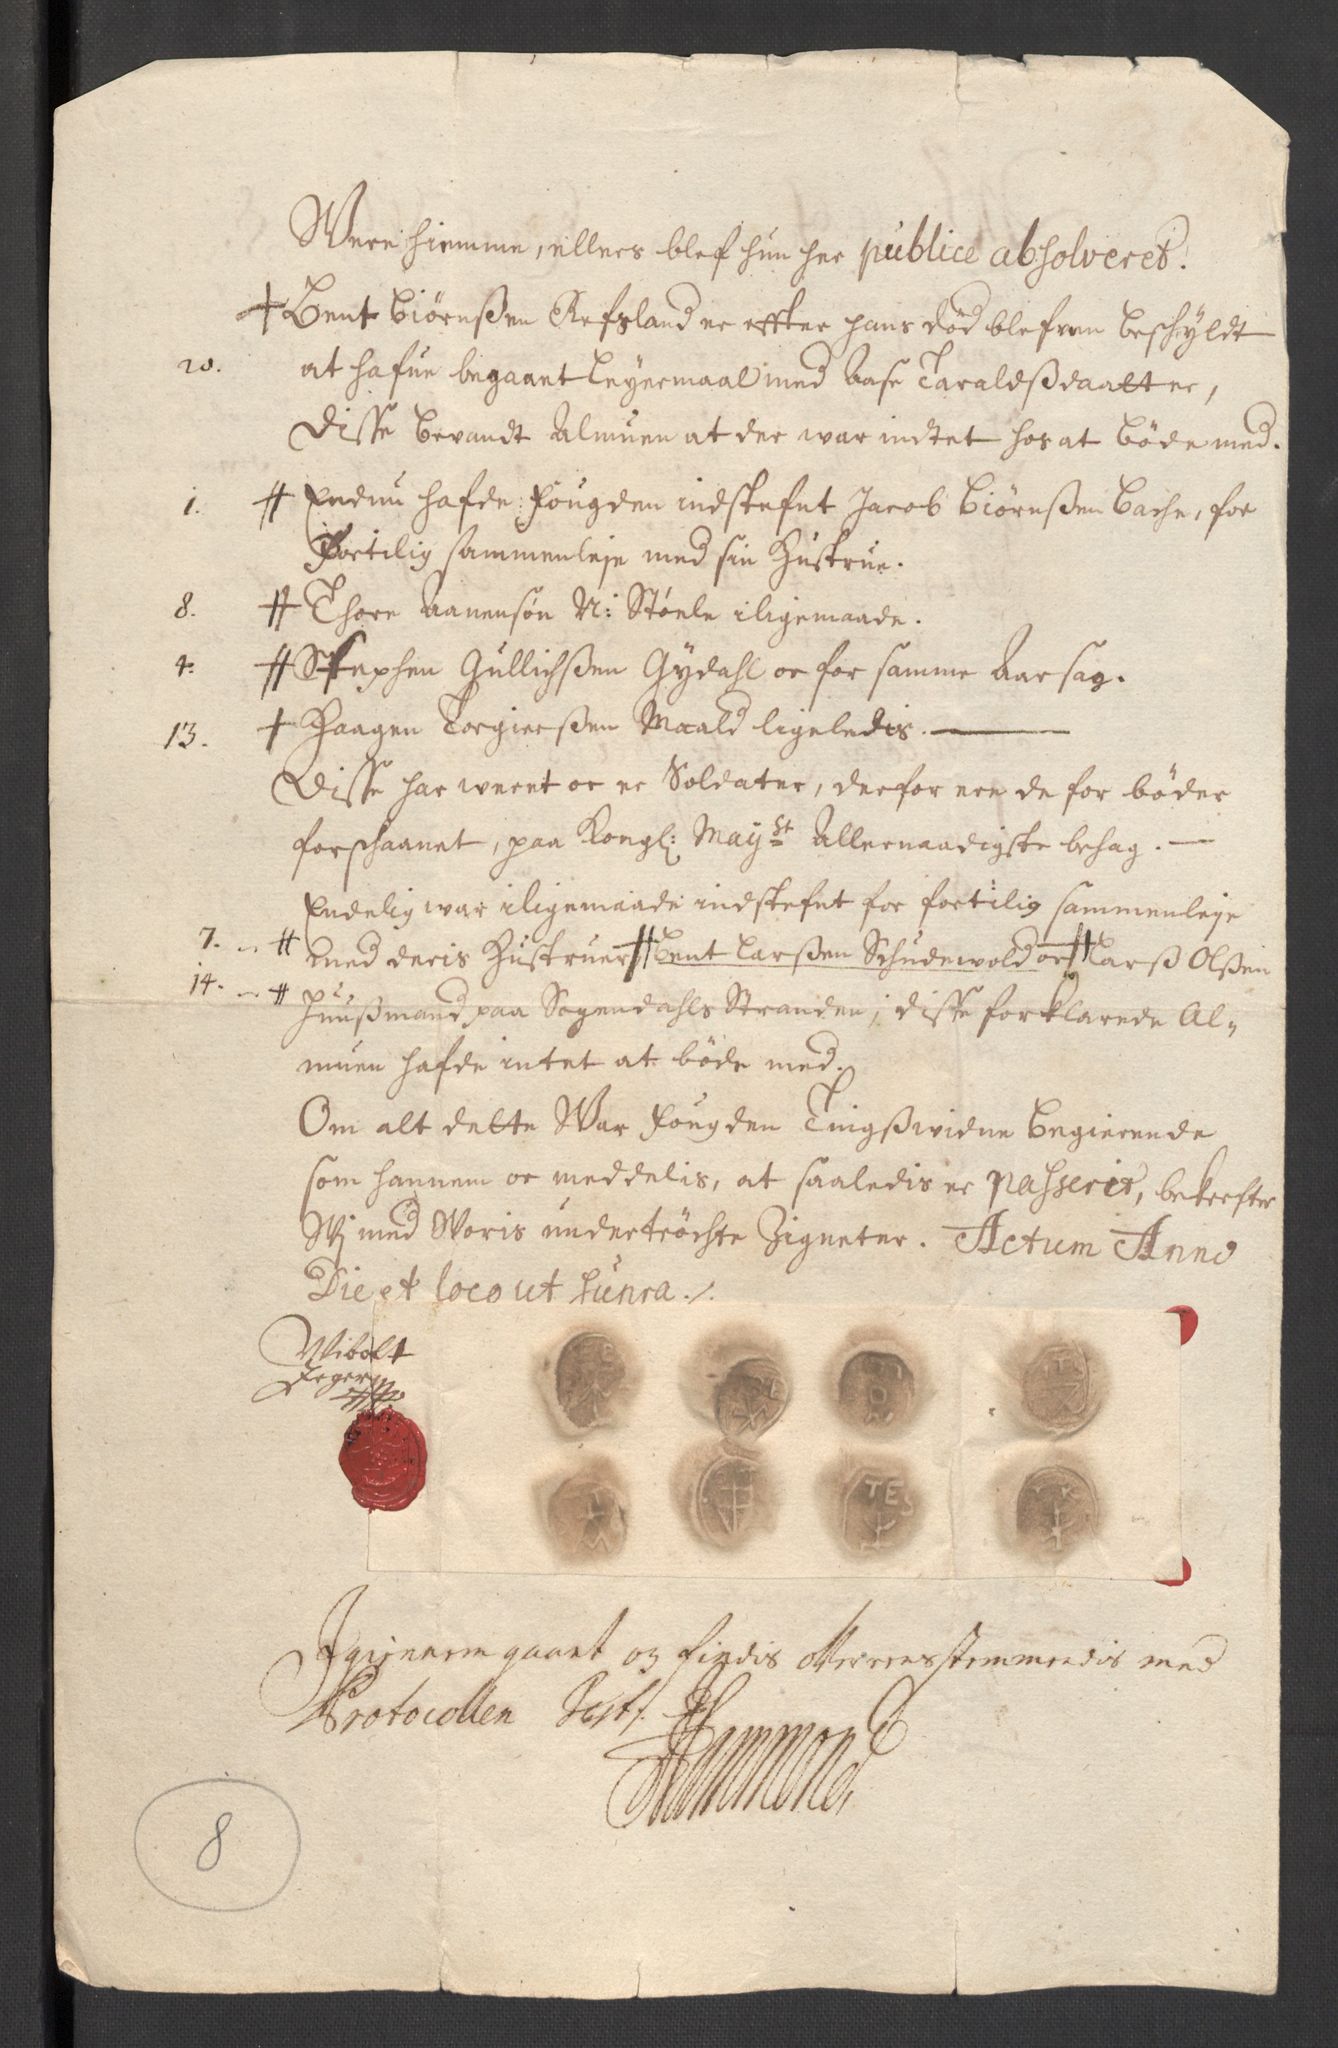 Were hiemme, ellers blef hun her publice absolveret.
† Bent Biørnßen Refsland er effter hans død blefven beschyldt
20. at hafue begaaet leyermaal med Aase Taraldßdaatter,
Disse bevandt Almuen at der war indtet hos at bøde med.
1. # Endnu hafde Fougden indstefnt Jacob Biørnßen Bache, for
Fortilig sammenleje med sin Hustrue.
8. # Thore Aanensøn N: Støele iligemaade.
4. # Stephen Gullichßen Gydahl oc for samme Aarsag.
13. † Haagen Torgierßen Maald ligeledis.
Disse har weret oc er Soldater, derfor ere de for bøder
forschaanet, paa Kongl: Mayst Allernaadigste behag.
Endelig war iligemaade indstefnt for fortilig sammenleye
7. # med deris Hustruer # Bent Larßen Schudewold oc # Larß Olßen
14. # Huußmand paa Sogendahls Stranden, disse forklarede Al-
muen hafde intet at bøde med.
Om alt dette War Fougden Tingßwidne Begierende
som hannem oc meddelis, at saaledis er passerit, bekrefter
Wj med Woris undertrøchte Zigneter. Actum Anno
Die et loco ut supra ./.
Wibolt
Jeger
TES
Igiennemgaaet og findis offvereensstemmendis med
Protocollen Test.
Hammond
8